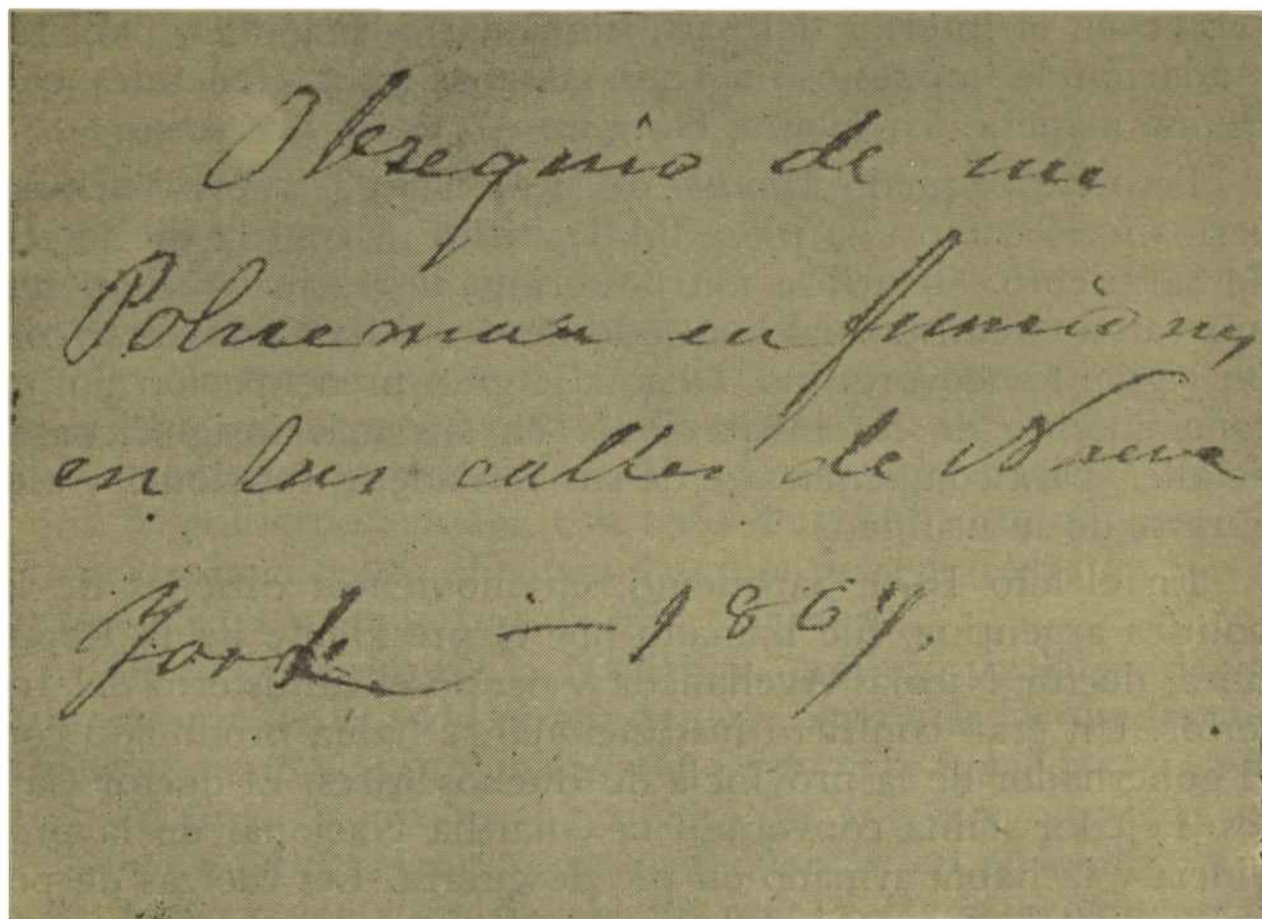 Obsequio de un
Policeman en funciones
en las calles de Nueva
York — 1867.